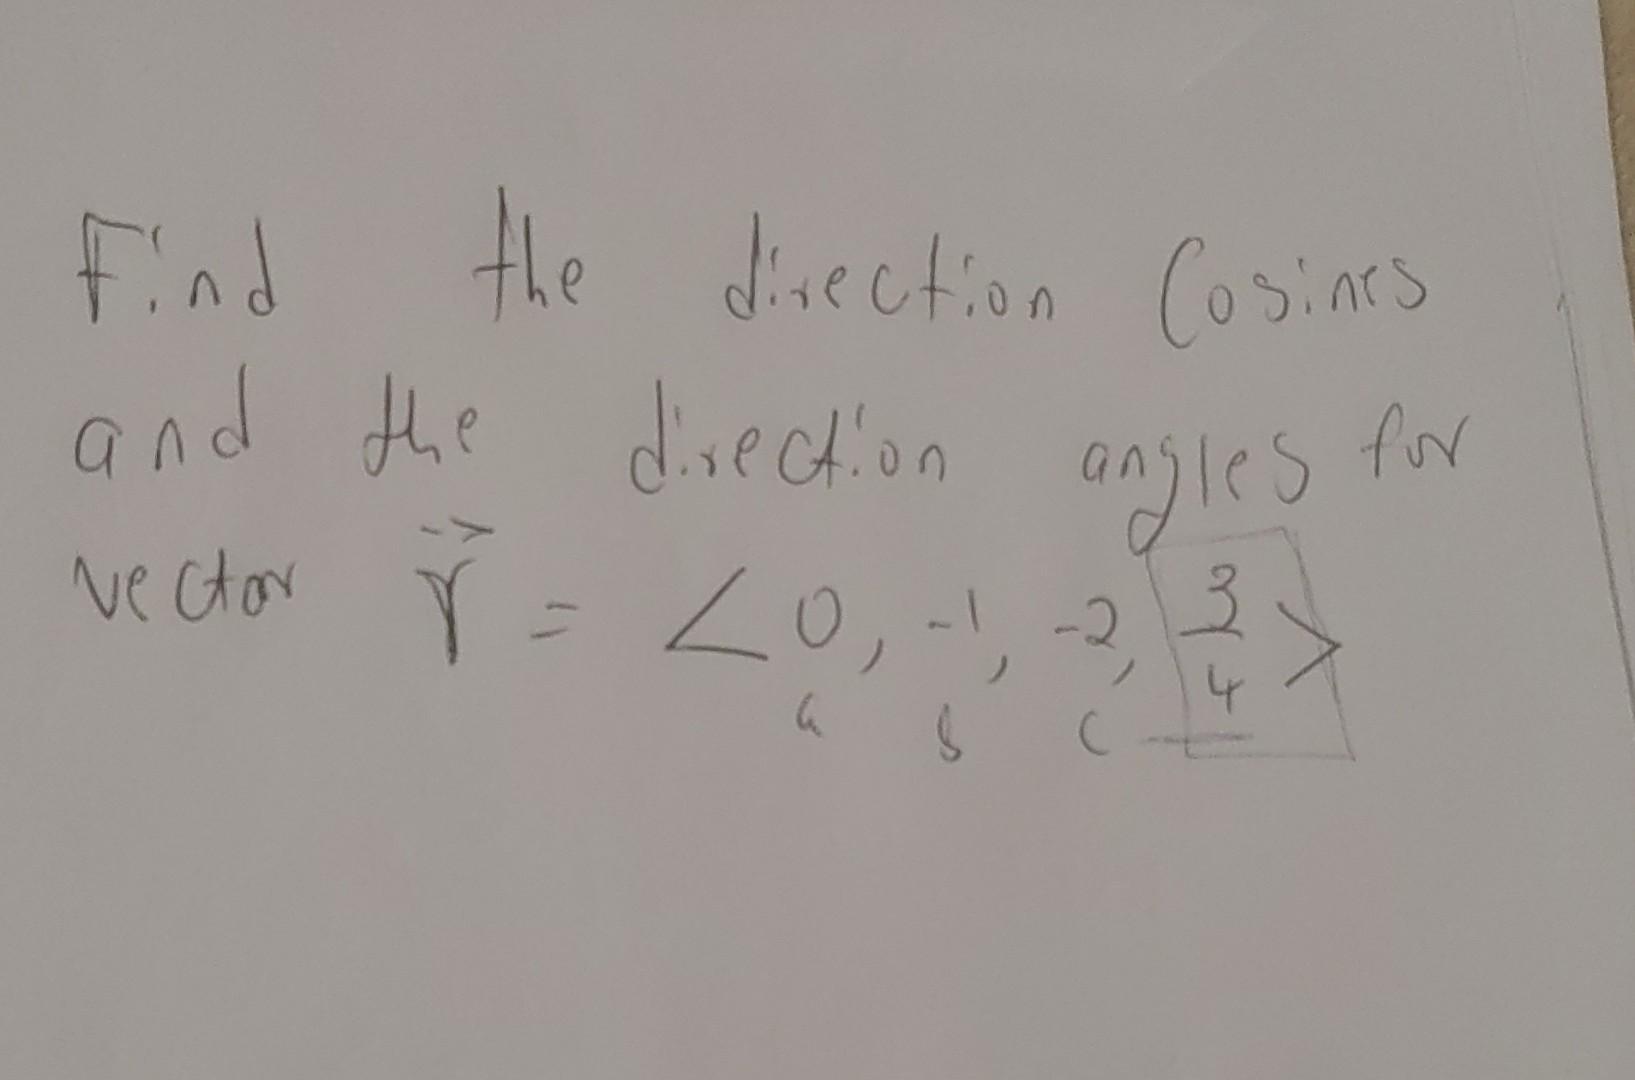 Find the direction Cosines
and the direction angles for
vector r⃗ = <0, -1, -2, 3/4>
a b c